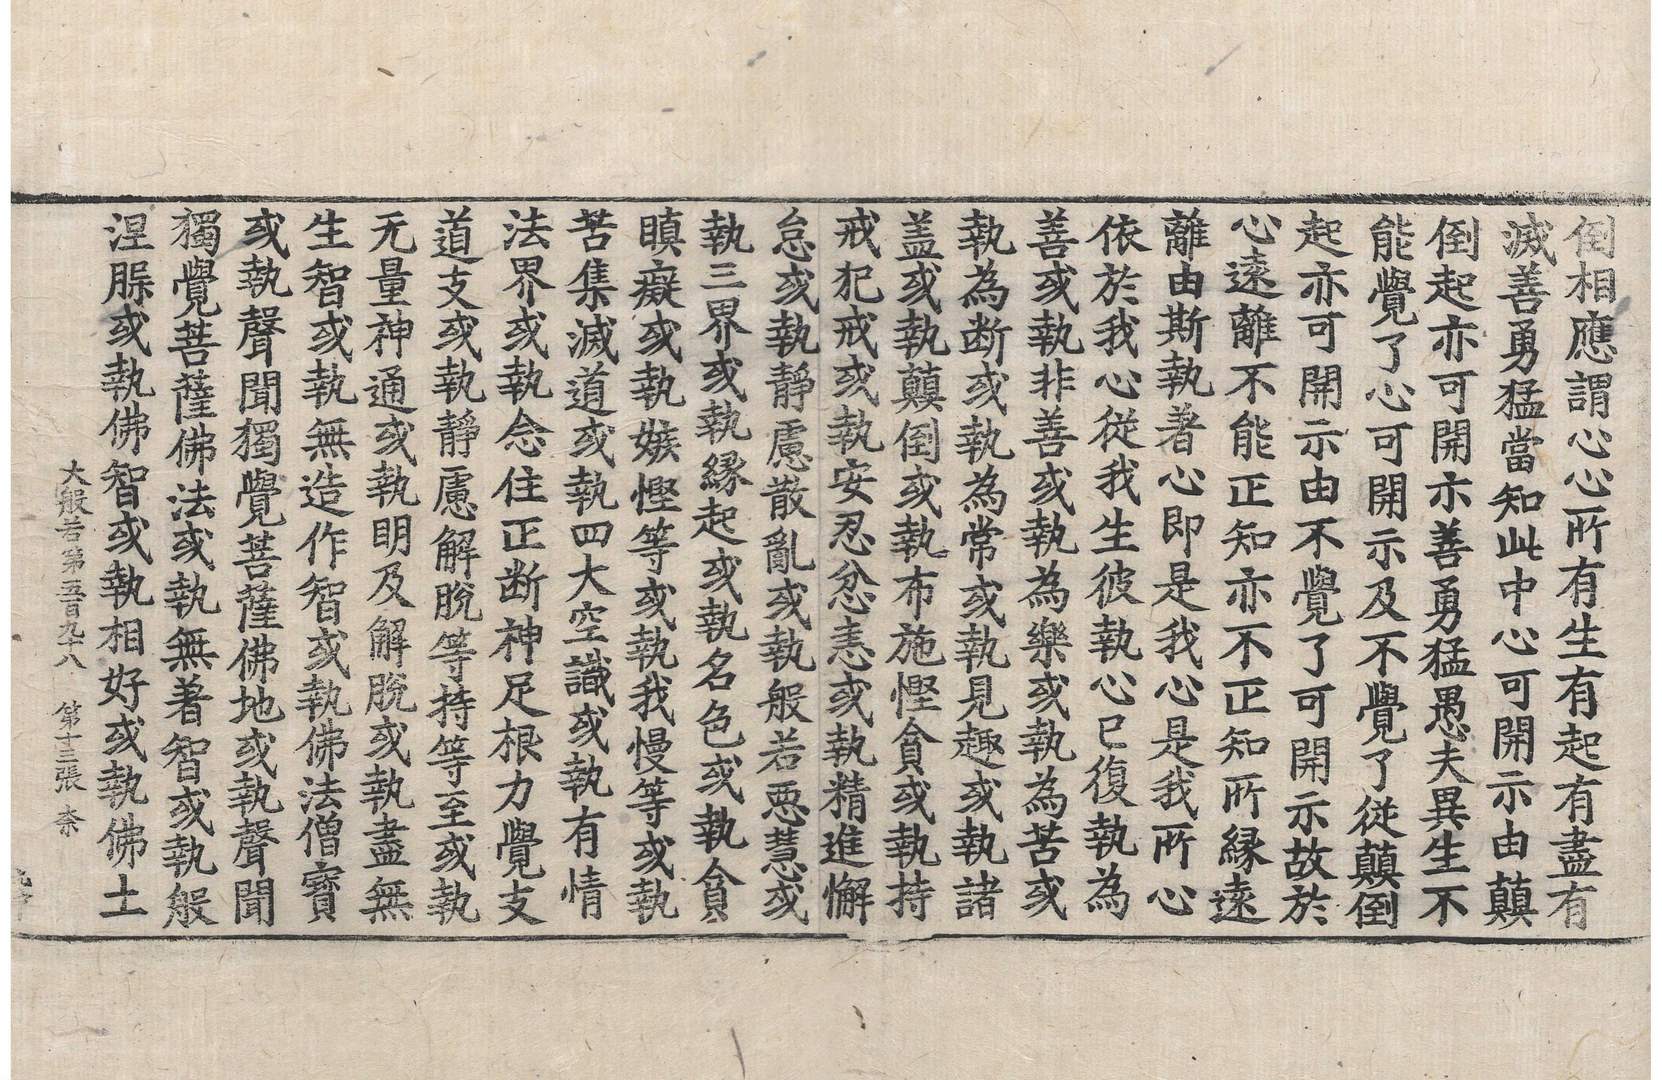 倒相應謂心心所有生有起有盡有
滅善勇猛當知此中心可開示由顛
倒起亦可開示善勇猛愚夫異生不
能覺了心可開示及不覺了從顛倒
起亦可開示由不覺了可開示故於
心遠離不能正知亦不正知所縁遠
離由斯執著心即是我心是我所心
依於我心從我生彼執心已復執為
善或執非善或執為樂或執為苦或
執為断或執為常或執見趣或執諸
盖或執顛倒或執布施慳貪或執持
戒犯戒或執安忍忿恚或執精進懈
怠或執靜慮散亂或執般若惡慧或
執三界或執縁起或執名色或執貪
瞋癡或執嫉慳等或執我慢等或執
苦集滅道或執四大空識或執有情
法界或執念住正断神足根力覺支
道支或執靜慮解脫等持等至或執
无量神通或執明及解脫或執盡無
生智或執無造作智或執佛法僧寶
或執聲聞獨覺菩薩佛地或執聲聞
獨覺菩薩佛法或執無著智或執般
涅脲或執佛智或執相好或執佛土
大般若第五百九十八 第十三張 柰